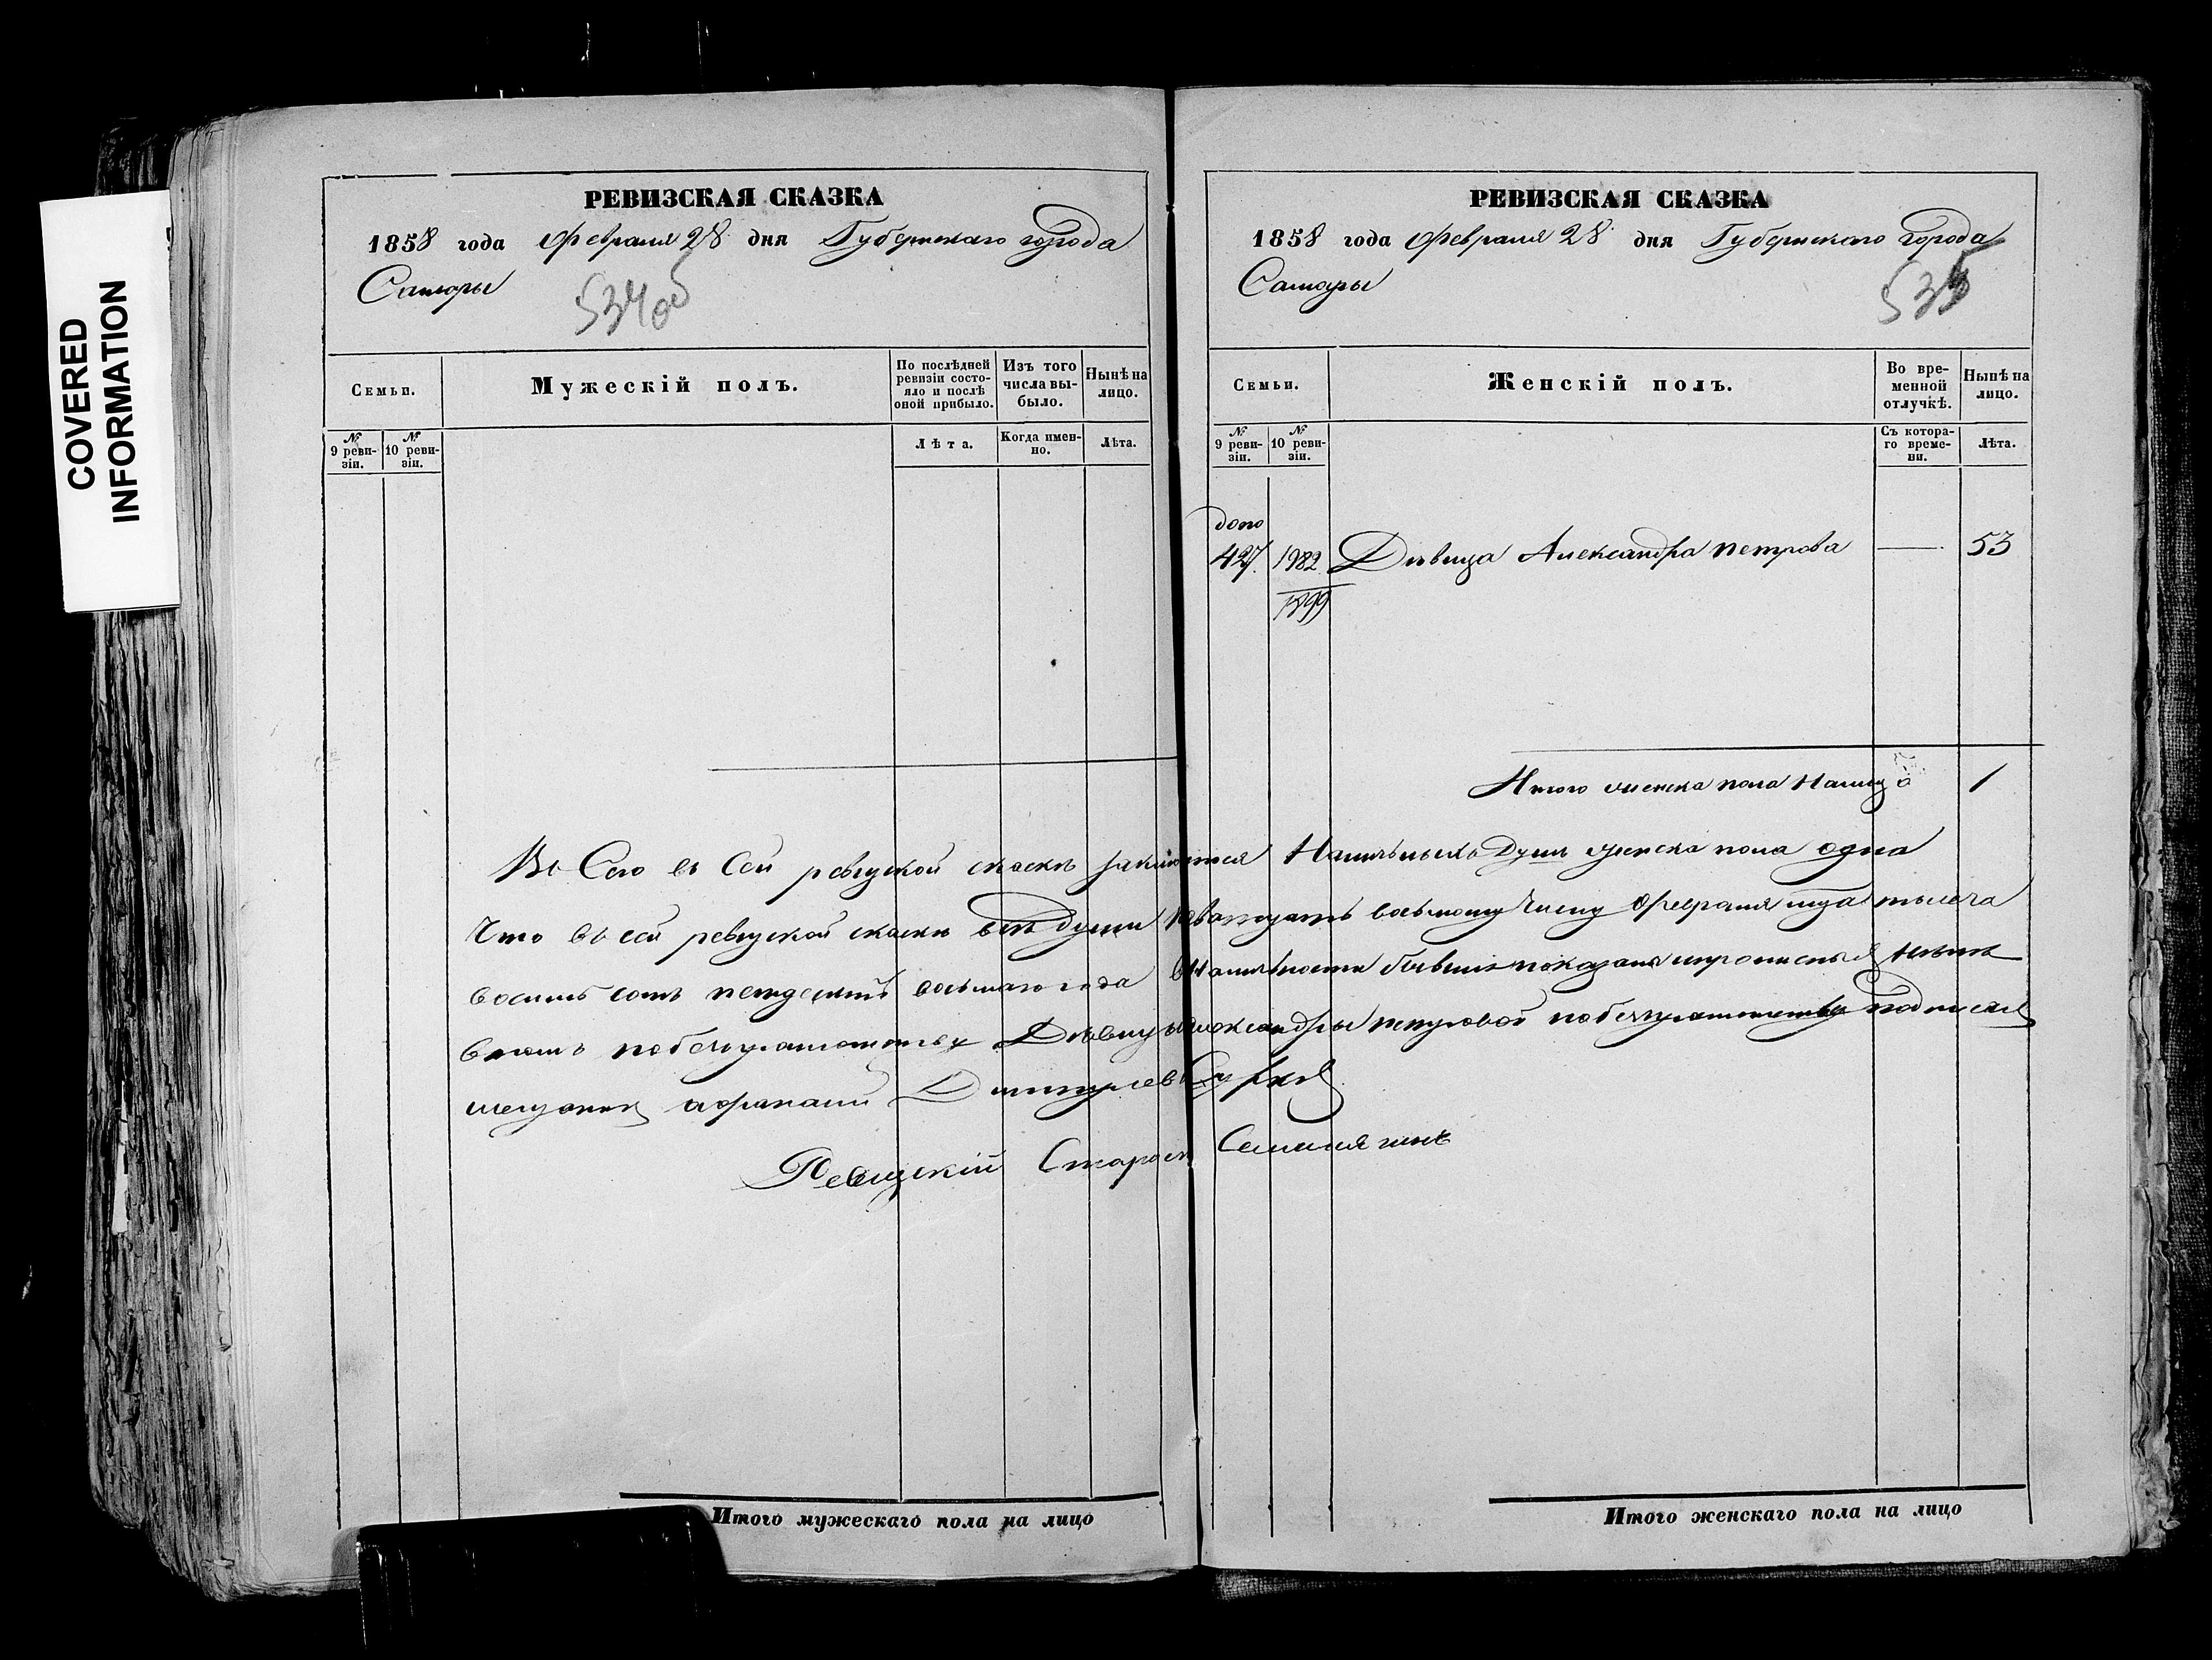 COVERED
INFORMATION
РЕВИЗСКАЯ СКАЗКА
1858 года Февраля 28 дня Губернскаго города
Самары
534об
Семьи.
Мужескій полъ.
По послѣдней
ревизіи состо-
яло и послѣ
оной прибыло.
Изъ того
числа вы-
было.
Нынѣ на
лицо.
№
9 реви-
зіи.
№
10 реви-
зіи.
Лѣта.
Когда имен-
но.
Лѣта.
Итого мужескаго пола на лицо
РЕВИЗСКАЯ СКАЗКА
1858 года Февраля 28 дня Губернскаго города
Самары
535
Семьи.
Женскій полъ.
Во вре-
менной
отлучкѣ.
Нынѣ на
лицо.
№
9 реви-
зіи.
№
10 реви-
зіи.
Съ котора-
го време-
ни.
Лѣта.
допо
427. 1982 Дѣвица Александра петрова — 53
1899
Итого женска пола Налицо 1
Всего въ Сей ревизкой скаскѣ Наличныхъ Душъ женска пола одна
Что въ сей ревизкой скаскѣ всѣ души восьмому Числу Февраля тысеча
восимь сотъ восьмаго года
Дѣвицы Александры петровой подписалъ
Дмитріевъ
Ревизкій Староста
Итого женскаго пола на лицо